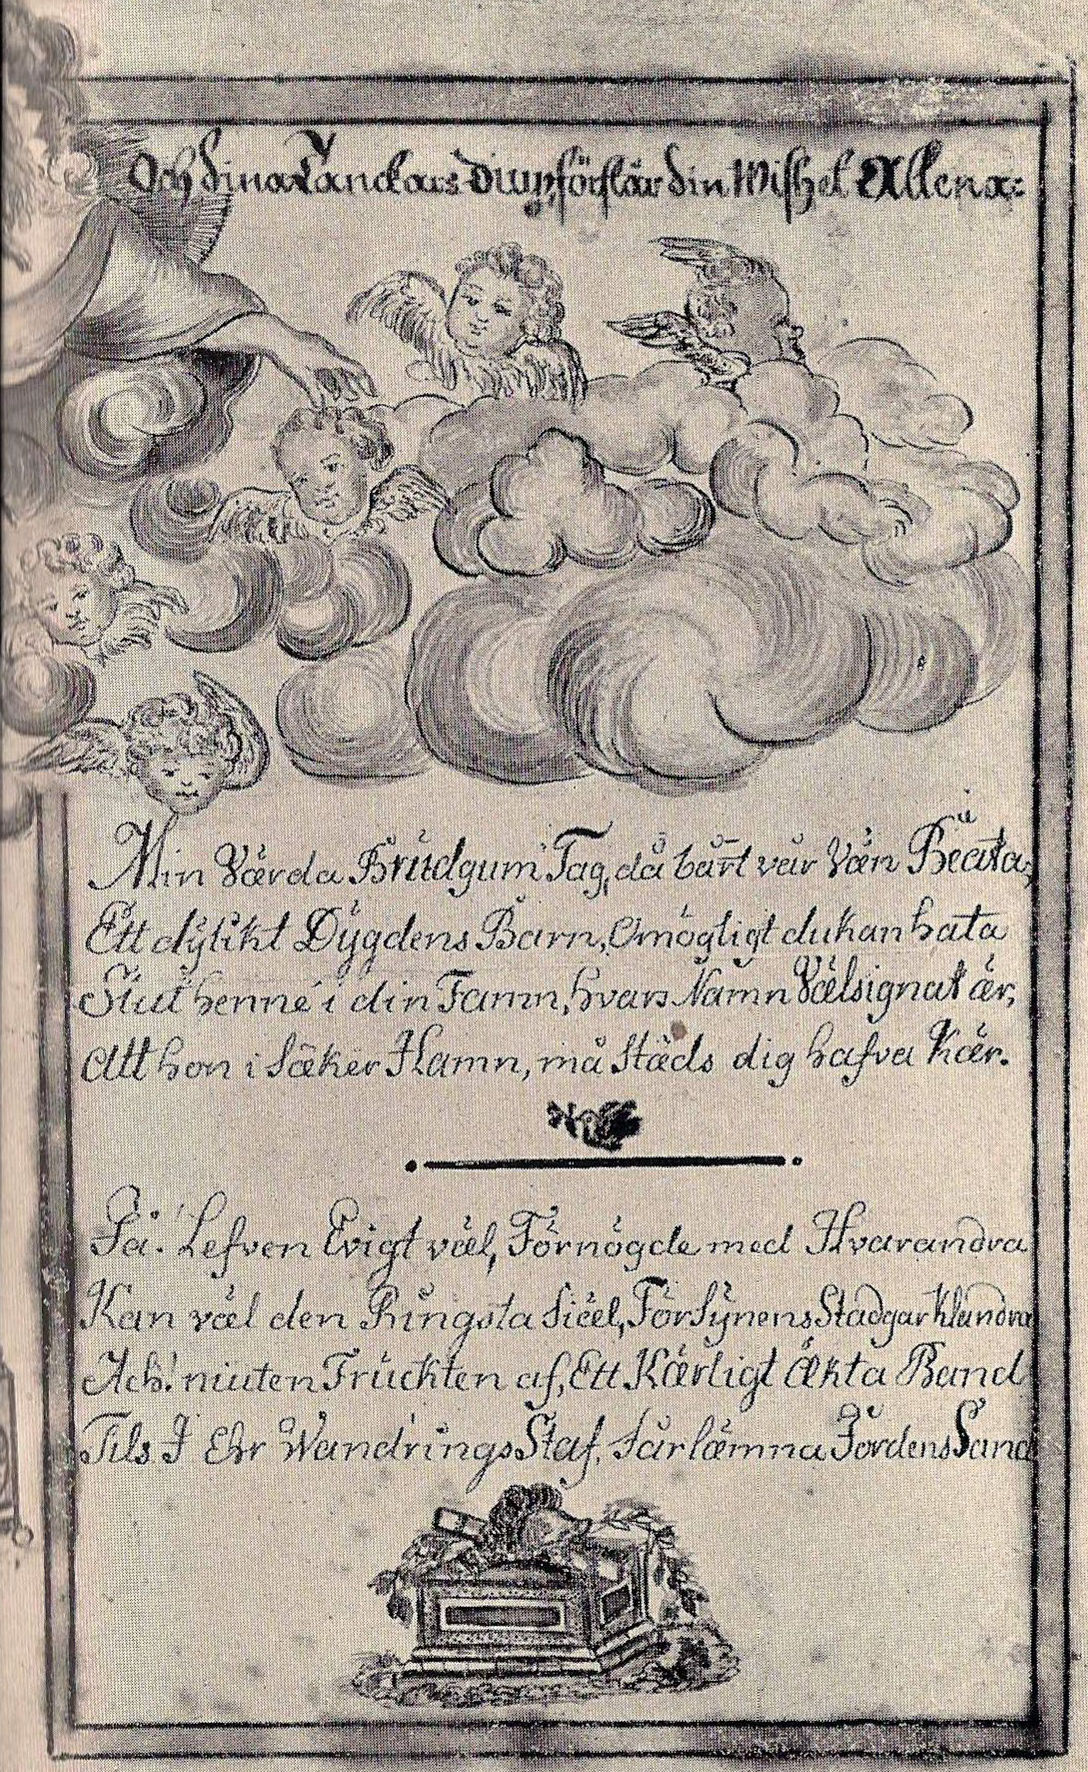 Och dina Tanckars Diup, förslår din Wishet Allena:
Min Värda Brudgum Tag, då bårt vår Vän Beata,
Ett dylikt Dygdens Barn, Omögligt du kan hata
Slut henne i din Famn, hvars Namn Välsignat är,
Att hon i säker Hamn, må städs dig hafva Kär.
Så! Lefven Evigt väl, Förnögde med Hvarandra
Kan väl den Ringsta siäl, Försynens Stadgar klandra
Ach! niuten Fruckten af, Ett Kärligt äkta Band
Tils I Ehr Wandrings Staf, får lämna Jordens Sand